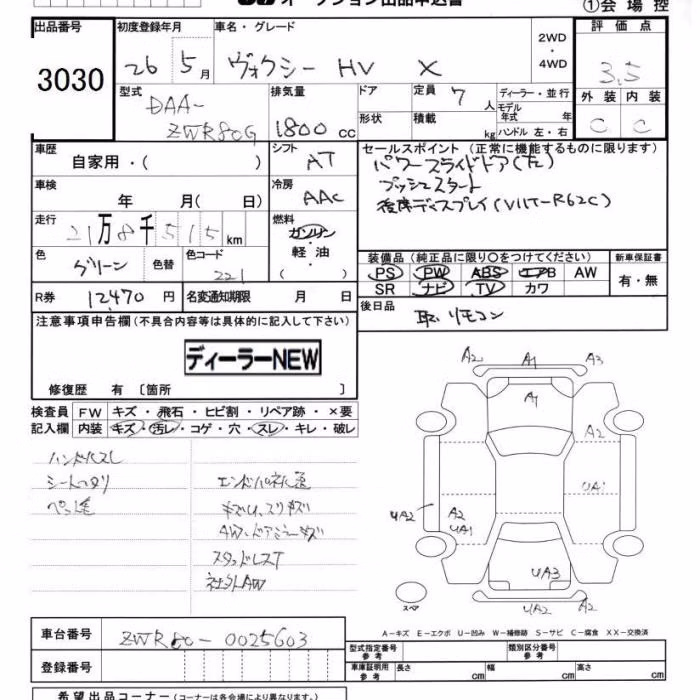 オークション出品申込書
①会場控
出品番号 初度登録年月 車名・グレード 評価点
3030 26 5月 ヴォクシー HV X 2WD ・ 4WD 3.5
型式 排気量 ドア 定員 7 人 ディーラー・並行 外装 内装
DAA- 形状 積載 kg モデル年式 年 C C
ZWR80G 1800 cc ハンドル 左・右
車歴 自家用・( ) シフト AT セールスポイント (正常に機能するものに限ります)
パワースライドドア(左)
車検 年 月( 日) 冷房 AAC プッシュスタート
後席ディスプレイ(V11T-R62C)
走行 21万8千515km 燃料 ガソリン 軽油 ( )
色 グリーン 色替 色コード 221
装備品 (純正品に限り○をつけてください) 新車保証書
PS PW ABS エアB AW 有・無
SR ナビ TV カワ
R券 12470円 名変通知期限 月 日
後日品 取、リモコン
注意事項申告欄 (不具合内容等は具体的に記入して下さい)
ディーラーNEW
修復歴 有 [箇所 ]
検査員 FW キズ・飛石・ヒビ割・リペア跡・×要
記入欄 内装 キズ・汚レ・コゲ・穴・スレ・キレ・破レ
A2 A1 A3
A1
A2
UA1
UA2 A2
UA1
UA3
UA2 A2
スペア
ハンドルスレ
エンドパネル
AW、ドアミラーキズ
スタッドレスT
社外AW
A-キズ E-エクボ U-凹み W-補修跡 S-サビ C-腐食 XX-交換済
車台番号 ZWR80-0025603
登録番号
型式指定番号 参考 類別区分番号 参考
車庫証明用 参考 長さ cm 幅 cm 高さ cm
希望出品コーナー (コーナーは各会場により異なります。)